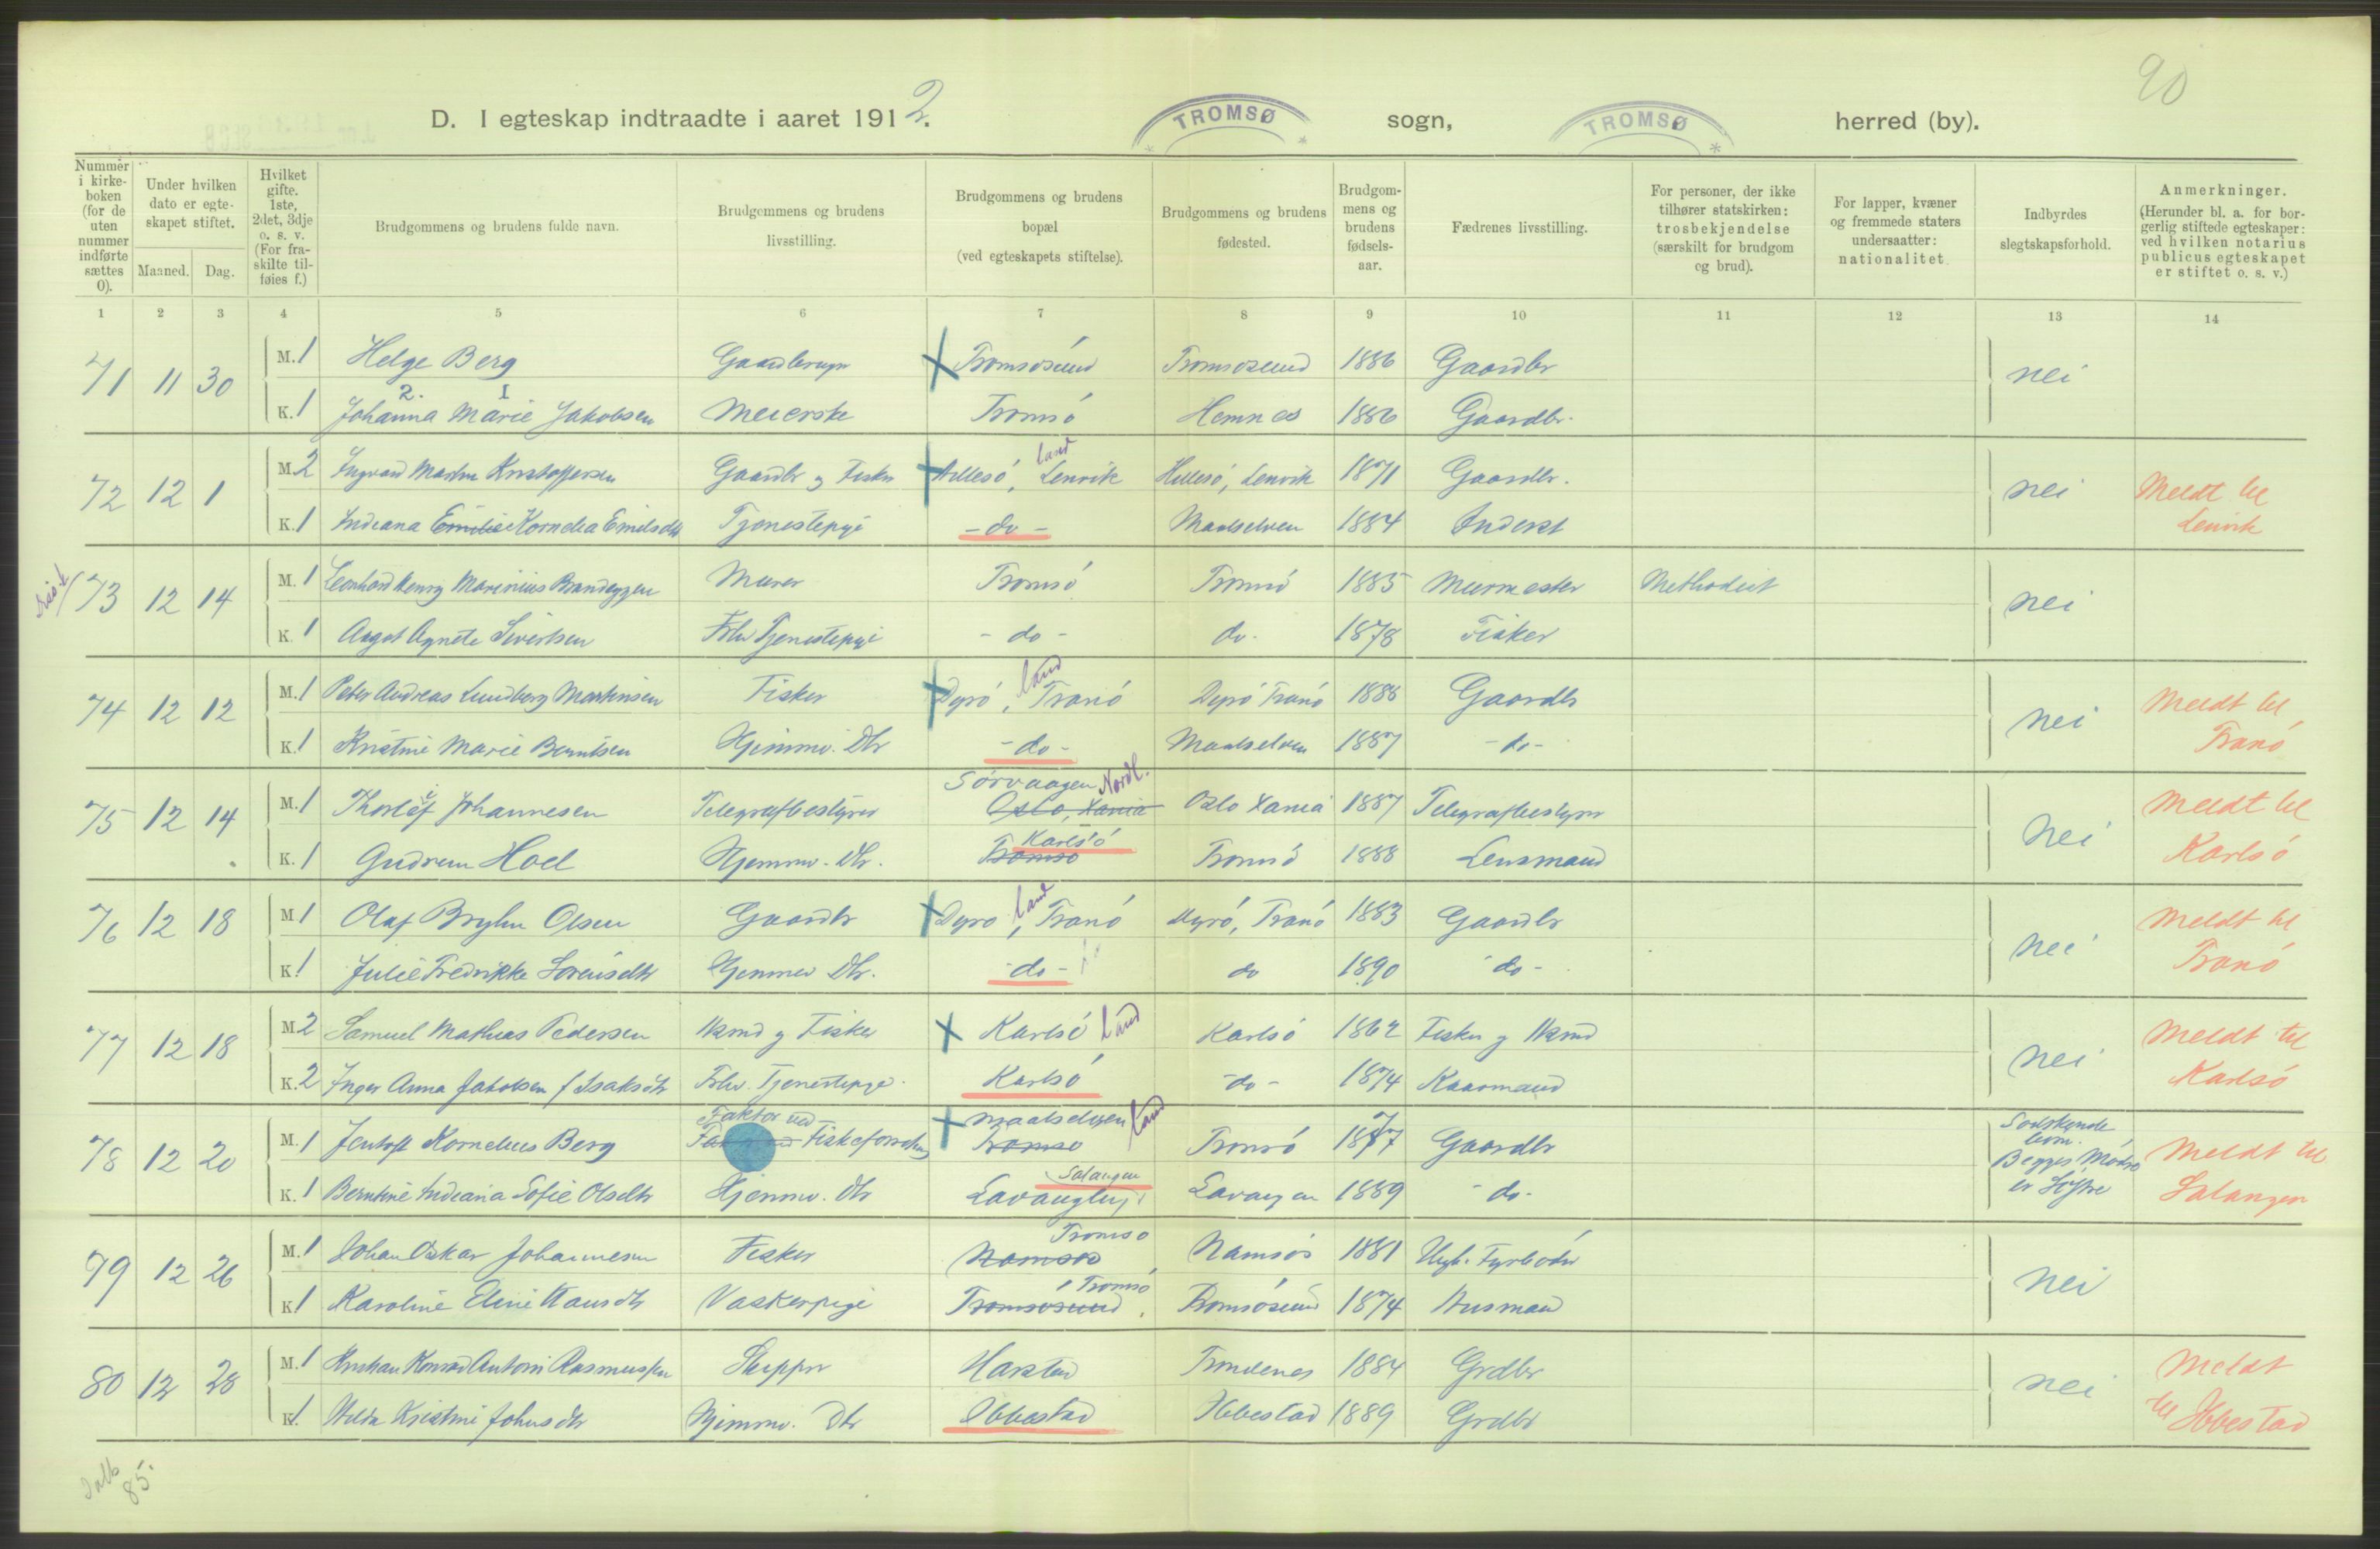 90
D. I egteskap indtraadte i aaret 1912. TROMSØ sogn, TROMSØ herred (by).
Nummer i kirkeboken (for de uten nummer indførte sættes 0).
Under hvilken dato er egteskapet stiftet.
Maaned. Dag.
Hvilket gifte. 1ste, 2det, 3dje o. s. v. (For fraskilte tilføies f.)
Brudgommens og brudens fulde navn.
Brudgommens og brudens livsstilling.
Brudgommens og brudens bopæl (ved egteskapets stiftelse).
Brudgommens og brudens fødested.
Brudgommens og brudens fødselsaar.
Fædrenes livsstilling.
For personer, der ikke tilhører statskirken: trosbekjendelse (særskilt for brudgom og brud).
For lapper, kvæner og fremmede staters undersaatter: nationalitet
Indbyrdes slegtskapsforhold.
Anmerkninger. (Herunder bl. a. for borgerlig stiftede egteskaper: ved hvilken notarius publicus egteskapet er stiftet o. s. v.)
1 2 3 4 5 6 7 8 9 10 11 12 13 14
71 11 30 M. 1 Helge Berg Tromsøsund Tromsøsund 1886 Gaardbr nei
2. 1
K. 1 Johanna Marie Jakobsen Meierske Tromsø Hemnes 1886 Gaardbr.
72 12 1 M. 2 Ingvard Martin Kristoffersen Gaardbr og Fisker Hillesø, Lenvik land Hillesø, Lenvik 1871 Gaardbr. nei Meldt til Lenvik
K. 1 Indiana Emilie Kornelia Emilsdtr Tjenestepige - do - Maalselven 1884 Inderst
73 12 14 M. 1 Leonhard Henry Marinius Murer Tromsø Tromsø 1885 Murmester Methodist nei
K. 1 Aagot Agnete Sivertsen Tjenestepige - do - do. 1878 Fisker
74 12 12 M. 1 Peter Andreas Lundberg Martinsen Fisker Dyrø, Tranø land Dyrø Tranø 1886 Gaardbr nei Meldt til Tranø
K. 1 Kristine Marie Berntsen Hjemmv. Dtr - do - Maalselven 1887 - do -
75 12 14 M. 1 Thorleif Johannesen Telegrafbestyrer Sørvaagen Nordl. Oslo, Xania Oslo Xania 1887 Telegrafbestyrer nei Meldt til Karlsø
K. 1 Gudrun Hoel Hjemmv. Dtr. Karlsø Tromsø Tromsø 1888 Lensmand
76 12 18 M. 1 Olaf Bryhn Olsen Gaardbr Dyrø, Tranø land Dyrø, Tranø 1883 Gaardbr nei Meldt til Tranø
K. 1 Julie Fredrikke Sørensdtr Hjemmev Dtr. - do - do 1890 - do -
77 12 18 M. 2 Samuel Mathias Pedersen og Fisker Karlsø Land Karlsø 1862 Fisker og nei Meldt til Karlsø
K. 2 Inger Anna Jakobsen f Isaksdtr Tjenestepige Karlsø - do - 1874 Kaarmand
78 12 20 M. 1 Jentoft Kornelius Berg Faktor ved Fiskeforretning Maalselven Land Tromsø Tromsø 1877 Gaardbr Sødskende børn. Begges Mødre er Søstre Meldt til Salangen
K. 1 Berntine Indiana Sofie Olsdtr Hjemmv. Dtr Salangen Lavangen 1889 - do -
79 12 26 M. 1 Johan Oskar Johannesen Fisker Tromsø Namsos Namsos 1881 Fyrbøder nei
K. 1 Karoline Eline Hansdtr Vaskerpige Tromsø Tromsøsund Tromsøsund 1874 Husmand
80 12 28 M. 1 Kristian Konrad Antoni Rasmussen Skipper Harstad Trondenes 1884 Grdbr nei Meldt til Ibbestad
K. 1 Hilda Kristine Johnsdtr Hjemmv. Dtr Ibbestad Ibbestad 1889 Grdbr
85.